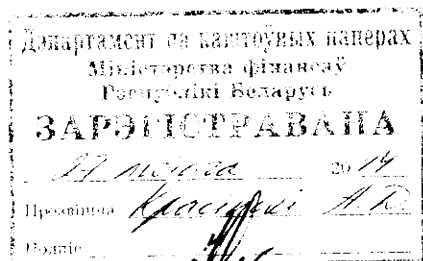 Дэпартамент па каштоўных паперах
Міністэрства фінансаў
Рэспублікі Беларусь
ЗАРЭГІСТРАВАНА
27 2014
Прозвішча
Подпіс